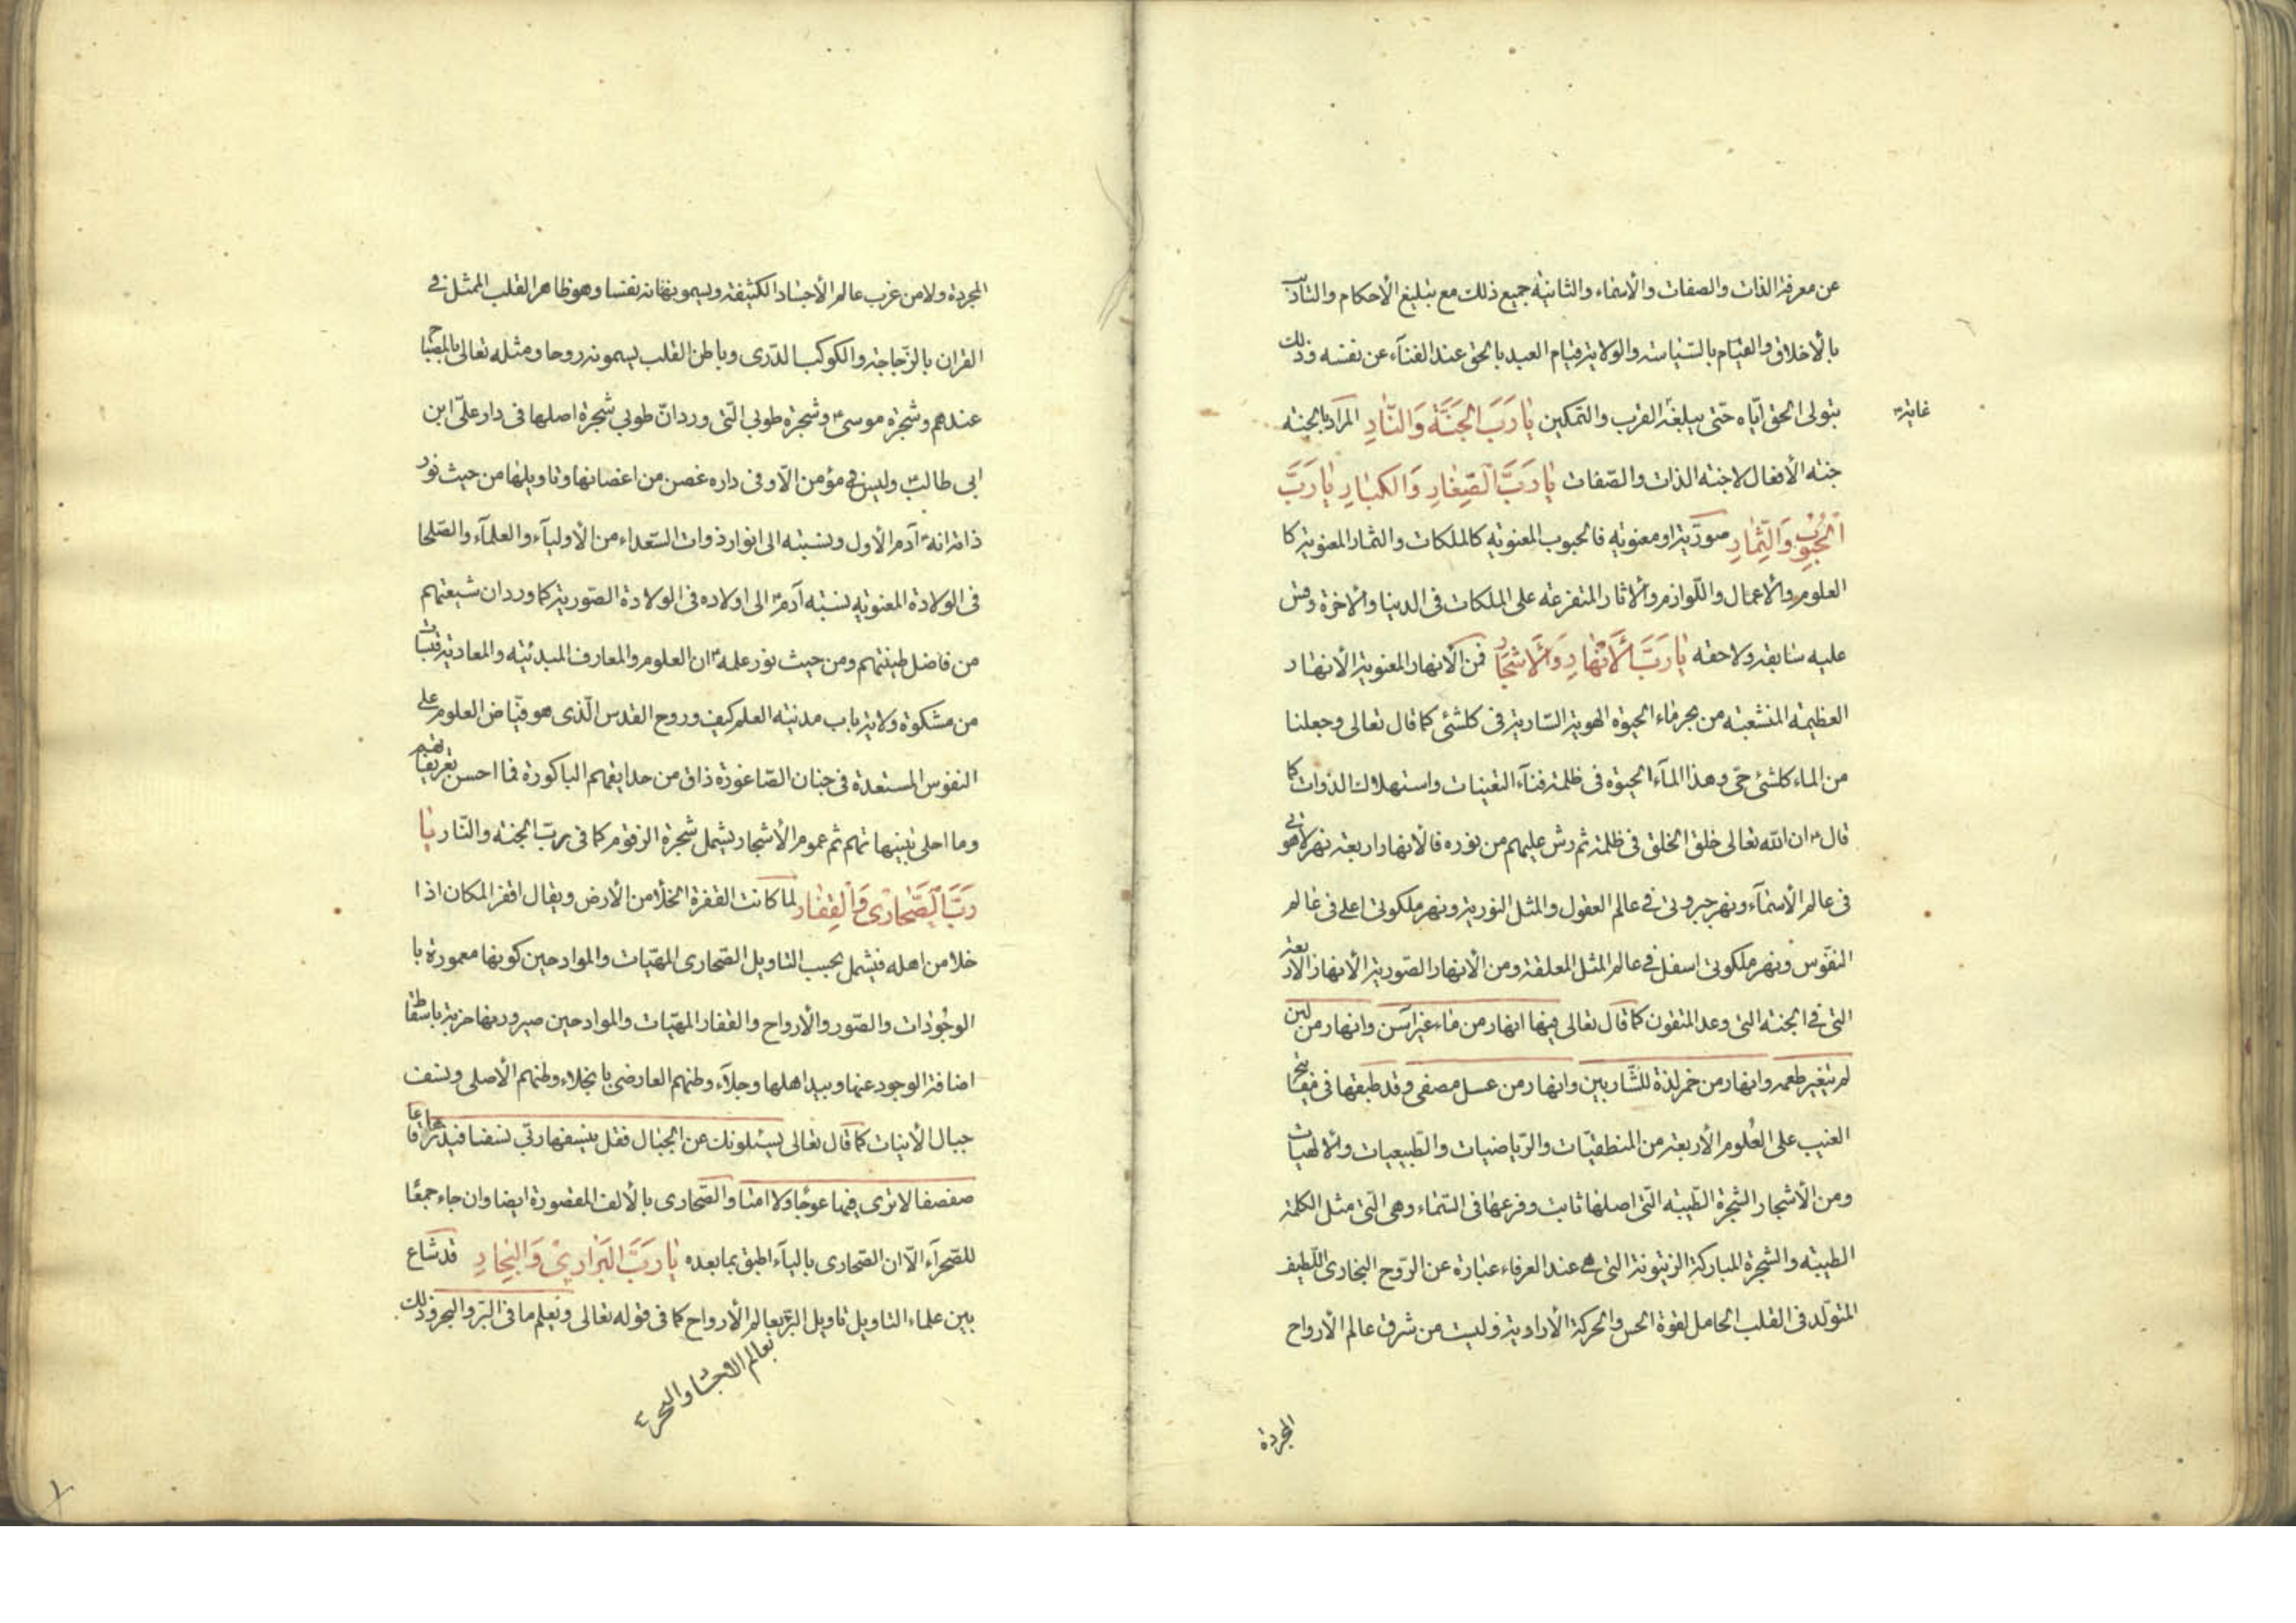 عن معرفة الذات والصفات والأسماء والثانية جميع ذلك مع تبليغ الأحكام والتأديب
بالأخلاق والقيام بالسياسة والولاية قيام العبد بالحق عند الفنآء عن نفسه وذلك
بتولى الحق اياه حتى يبلغه القرب والتمكين يا رَبَّ الجَنَّةِ وَالنَّارِ المراد بالجنة
غاية
جنة الأفعال لا جنة الذات والصفات يا رَبَّ الصِّغَارِ وَالكبارِ يا رَبَّ
الحُبُوبِ وَالثِّمارِ صورية او معنوية فالحبوب المعنوية كالملكات والثمار المعنوية كا
العلوم والأعمال واللوازم والآثار المتفرعة على الملكات فى الدنيا والآخرة وقس
عليه سابقه ولاحقه يا رَبَّ الأَنْهارِ وَالأَشْجارِ فمن الأنهار المعنوية الأنهار
العظيمة المنشعبة من بحر ماء الحيوة الهوية السارية فى كلشئ كما قال تعالى وجعلنا
من الماء كلشئ حى وهذا المآء الحيوة فى ظلمة فنآء التعينات واستهلاك الذوات كما
قال ان الله تعالى خلق الخلق فى ظلمة ثم رش عليهم من نوره فالأنهار اربعة نهر لاهوتى
فى عالم الأسمآء ونهر جبروتى فى عالم العقول والمثل النورية ونهر ملكوتى اعلى فى عالم
النفوس ونهر ملكوتى اسفل فى عالم المثل المعلقة ومن الأنهار الصورية الأنهار الأربعة
التى فى الجنة التى وعد المتقون كما قال تعالى فيها انهار من ماء غير اسن وانهار من لبن
لم يتغير طعمه وانهار من خمر لذة للشاربين وانهار من عسل مصفى وقد طبقها فى مفاتيح
الغيب على العلوم الأربعة من المنطقيات والرياضيات والطبيعيات والالهيات
ومن الأشجار الشجرة الطيبة التى اصلها ثابت وفرعها فى السماء وهى التى مثل الكلمة
الطيبة والشجرة المباركة الزيتونة التى هى عند العرفاء عبارة عن الروح البخارى اللطيف
المتولد فى القلب الحامل لقوة الحس والحركة الأرادية وليست من شرق عالم الأرواح
المجردة
المجردة ولا من غرب عالم الأجساد الكثيفة ويسمونها نفسا وهو ظاهر القلب الممثل فى
القران بالزجاجة والكوكب الدرى وباطن القلب يسمونه روحا ومثله تعالى بالمصباح
عندهم وشجرة موسى وشجرة طوبى التى ورد ان طوبى شجرة اصلها فى دار على ابن
ابى طالب وليس مؤمن الا وفى داره غصن من اغصانها وتاويلها من حيث نور
ذاته انه آدم الأول ونسبته الى انوار ذوات السعداء من الأوليآء والعلمآء والصلحا
فى الولادة المعنوية نسبة آدم الى اولاده فى الولادة الصورية كما ورد ان شيعتهم
من فاضل طينتهم ومن حيث نور علمه ان العلوم والمعارف المبدئية والمعادية
من مشكوة ولاية باب مدينة العلم كيف وروح القدس الذى هو فياض العلوم على
النفوس المستعدة فى جنان الصاغورة ذاق من حدايقهم الباكورة فما احسن تعريفاتهم
وما احلى تنبيهاتهم ثم عموم الأشجار يشمل شجرة الزقوم كما فى رب الجنة والنار يا
رَبَّ الصَّحارى وَالْقِفارِ لما كانت القفرة الخلأ من الأرض ويقال اقفر المكان اذا
خلا من اهله فيشمل بحسب التاويل الصحارى المهيات والمواد حين كونها معمورة با
الوجودات والصور والأرواح والقفار المهيات والمواد حين صيرورتها خربة باسقاط
اضافة الوجود عنها وبيد اهلها وجلآء وطنهم العارضى بانجلاء وطنهم الأصلى ونسف
جبال الأنيات كما قال تعالى يسئلونك عن الجبال فقل ينسفها ربى نسفا فيذرها قاعا
صفصفا لا ترى فيها عوجا ولا امتا والصحارى بالألف المقصورة ايضا وان جاء جمعا
للصحرآء الا ان الصحارى باليآء اطبق بما بعده يا رَبَّ البَرارِيْ وَالبِحارِ قد شاع
بين علماء التاويل تاويل البر بعالم الأرواح كما فى قوله تعالى ويعلم ما فى البر والبحر وذلك
بعالم الاجساد والبحر